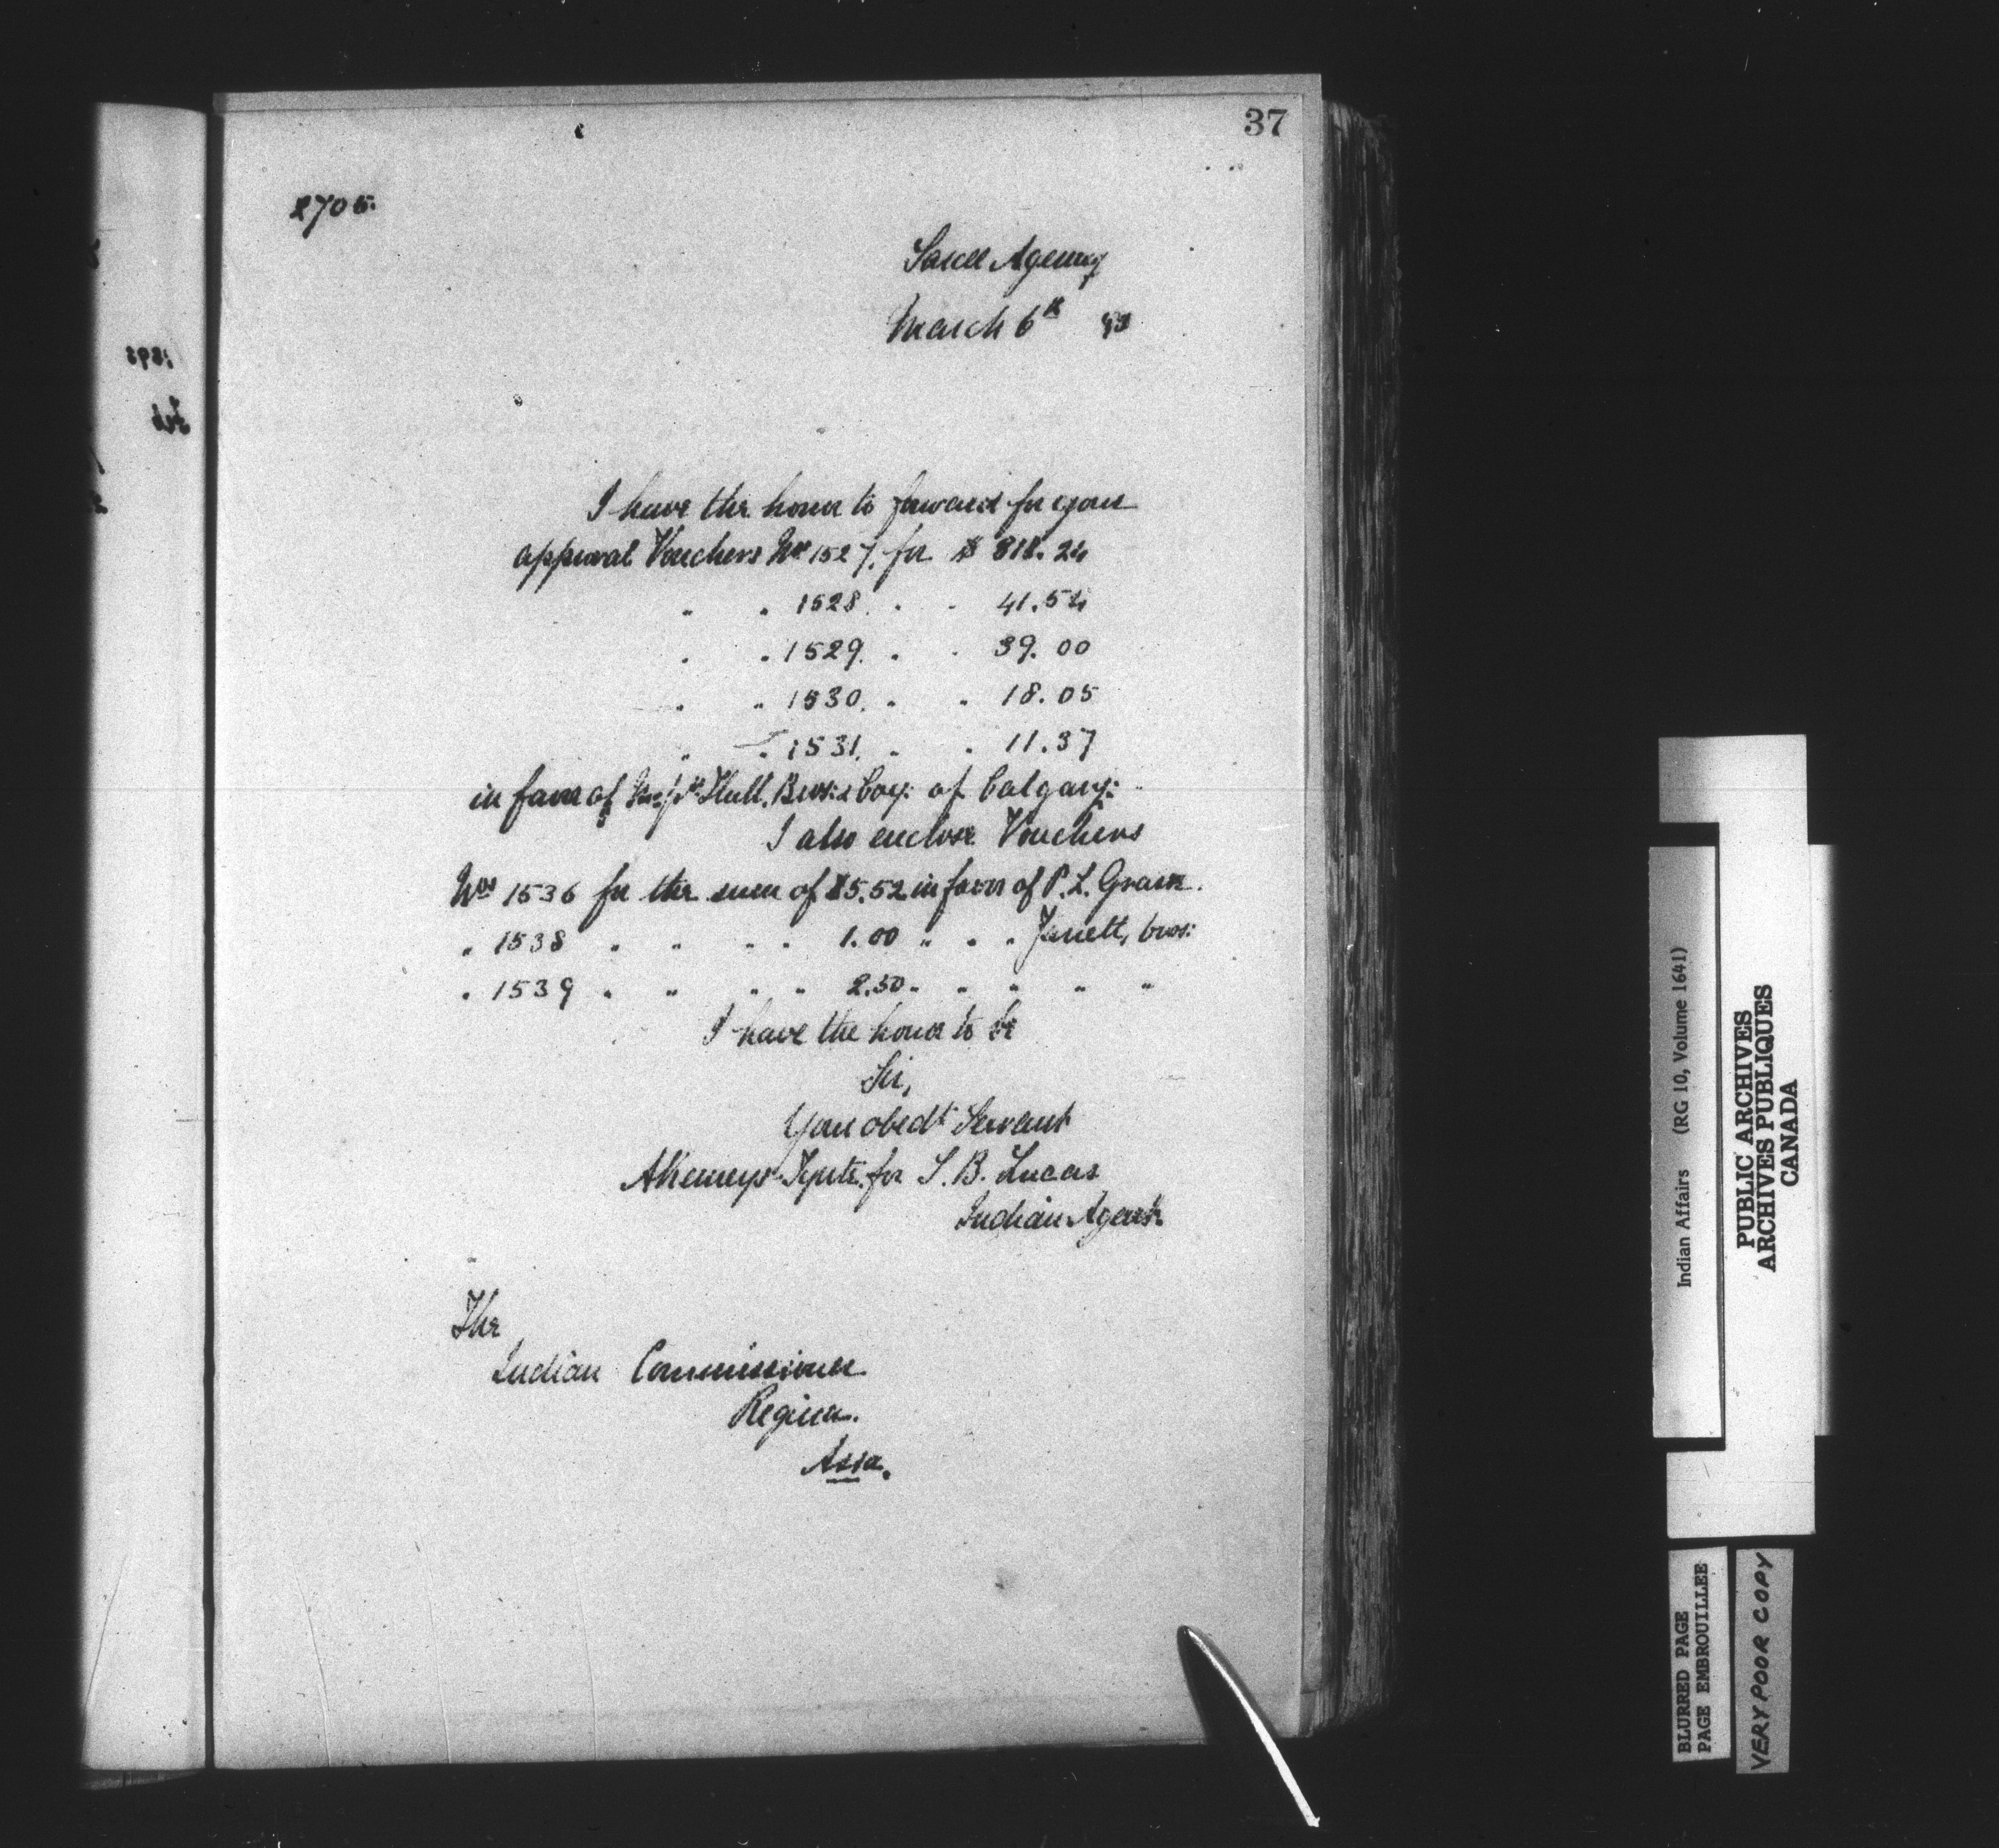 37
2705.
Sarcee Agency
March 6th 93
1893
Feb
I have the honor to forward for your
approval Vouchers No 1527. for $ 818.24
" " 1528. " " 41.54
" " 1529. " " 39.00
" " 1530. " " 18.05
" " 1531. " " 11.37
in favor of Messrs Hull, Bros: & Coy: of Calgary:
I also enclose Vouchers
Nos 1536 for the sum of $5.52 in favor of P. L.
" 1538 " " " " 1.00 " " " Jarrett, bros:
" 1539 " " " " 2.50 " " " " "
I have the honor to be
Sir,
Your obedt Servant
for S. B. Lucas
Indian Agent.
The
Indian Commissioner
Regina.
Assa.
Indian Affairs (RG 10, Volume 1641)
PUBLIC ARCHIVES
ARCHIVES PUBLIQUES
CANADA
BLURRED PAGE
PAGE EMBROUILLEE
VERY POOR COPY